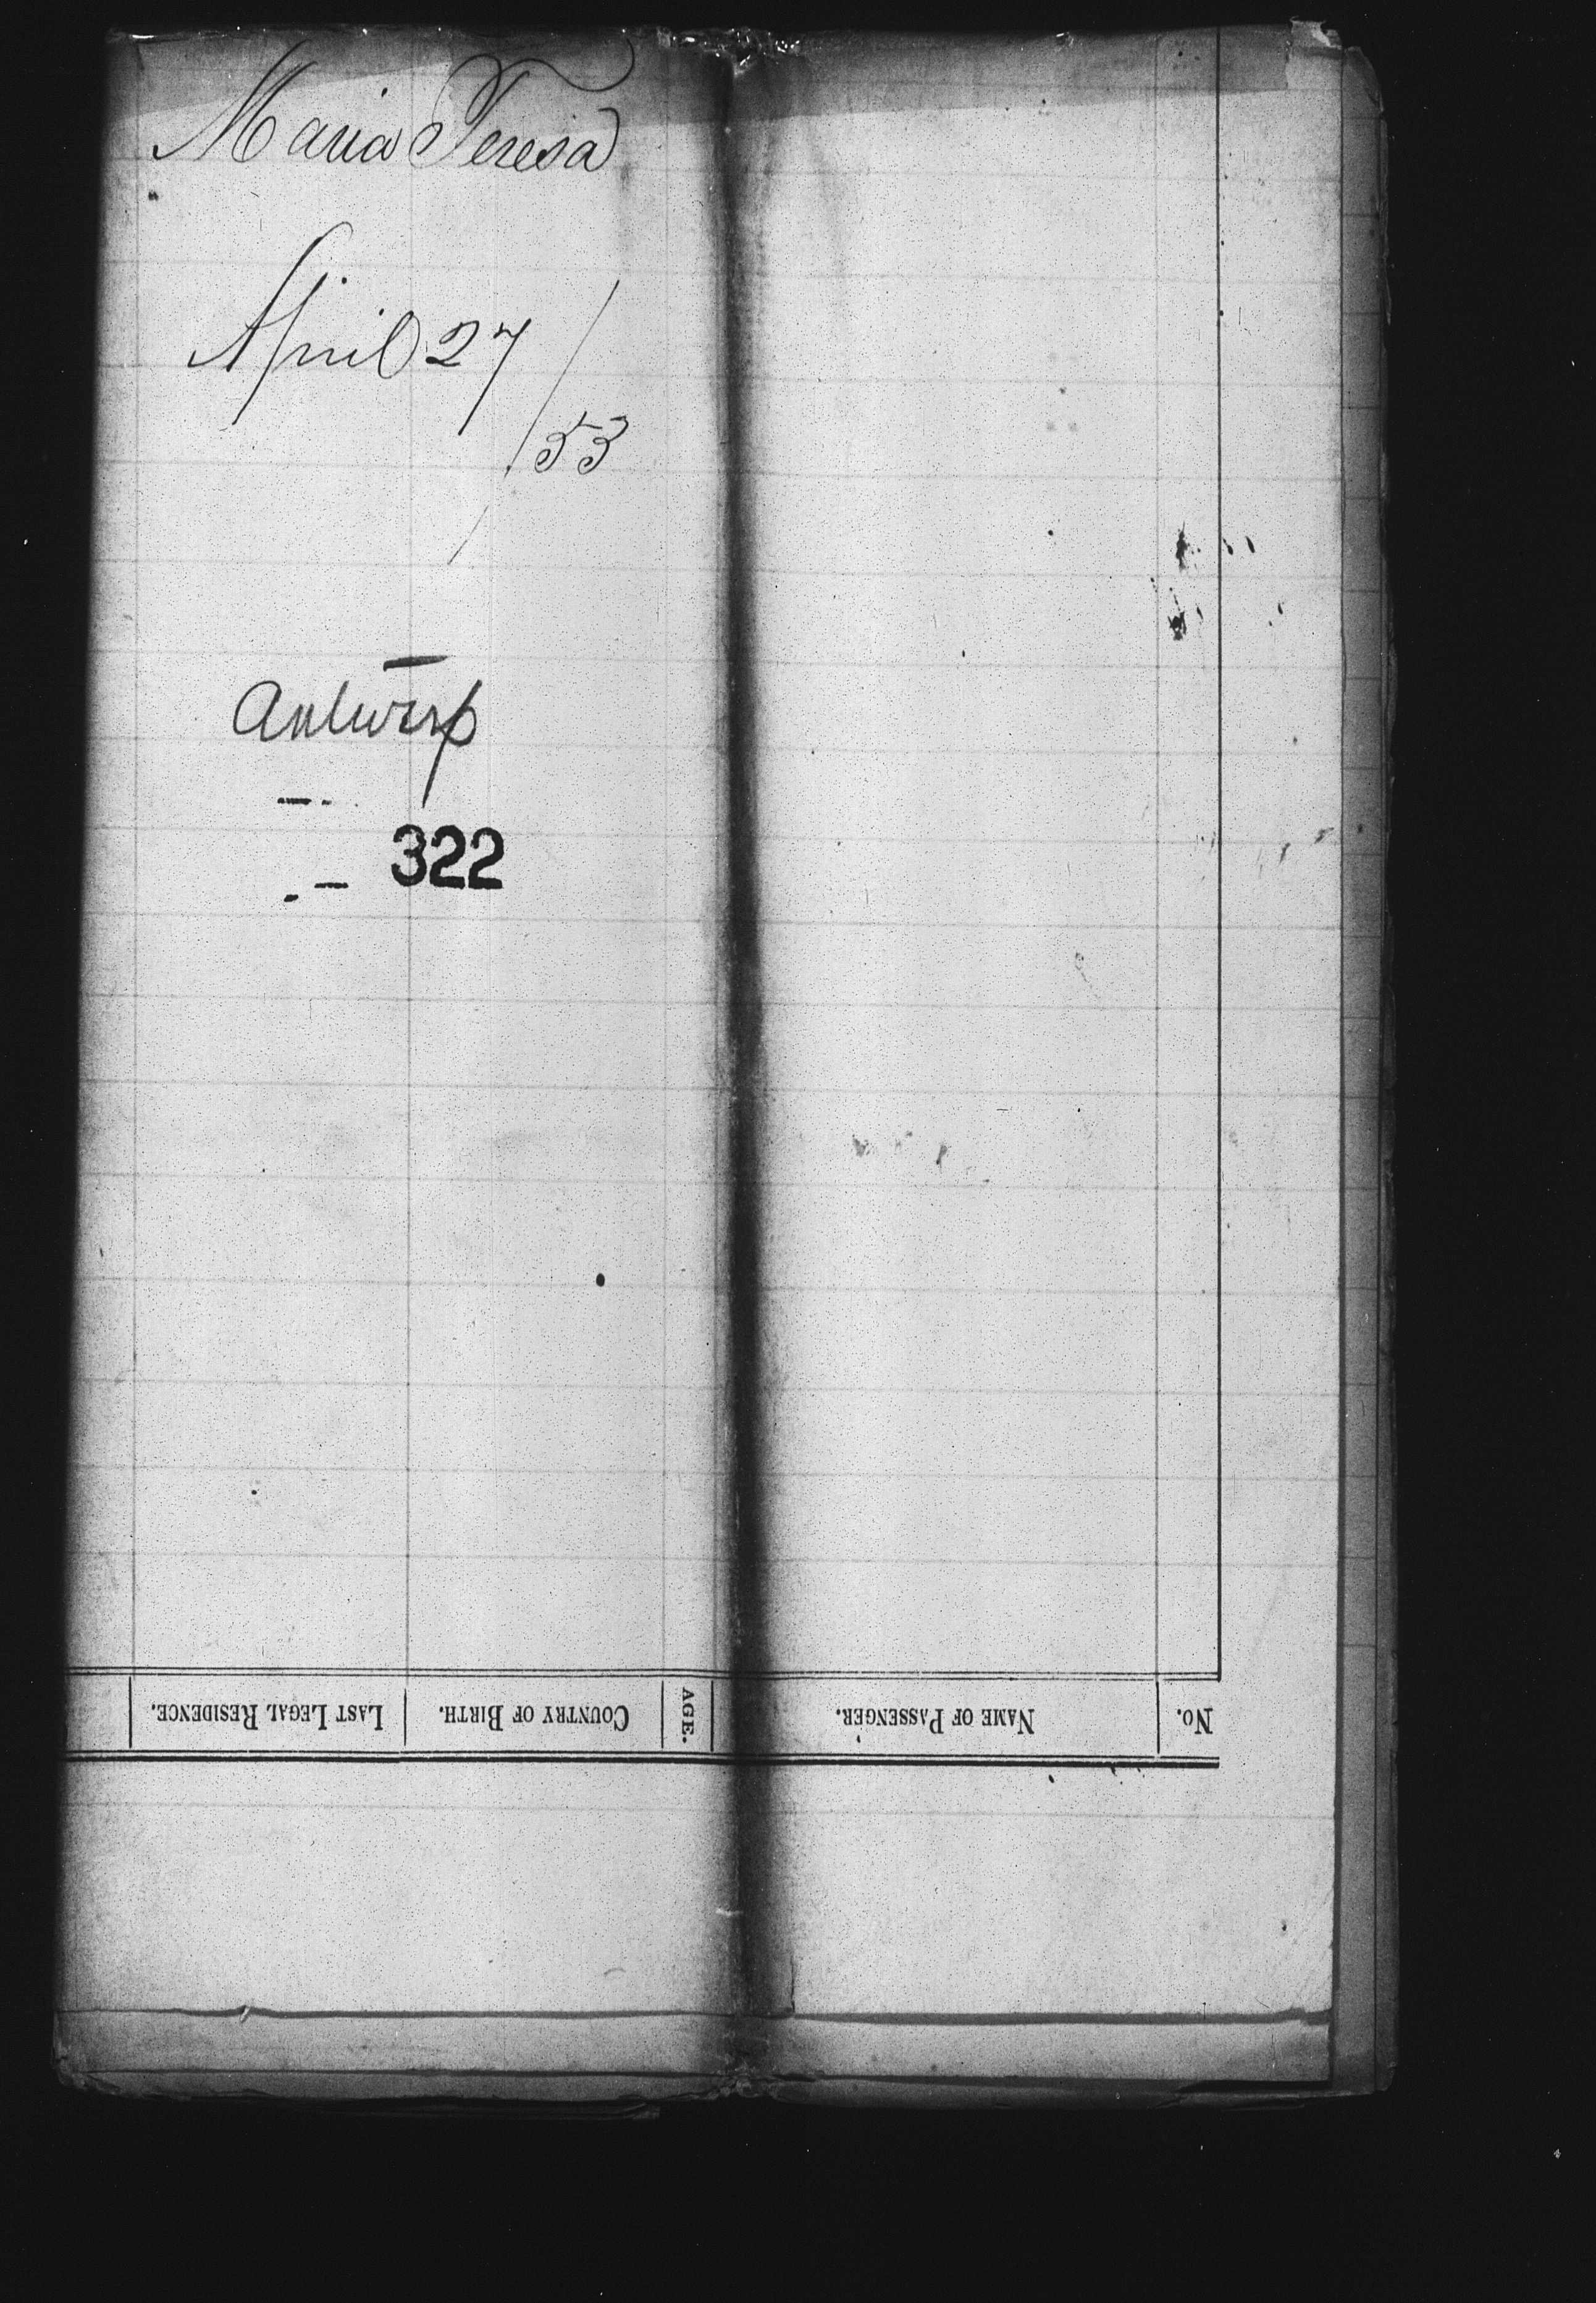 Maria Teresa
April 27/53
Antwerp
322
No.
NAME OF PASSENGER.
AGE.
COUNTRY OF BIRTH.
LAST LEGAL RESIDENCE.